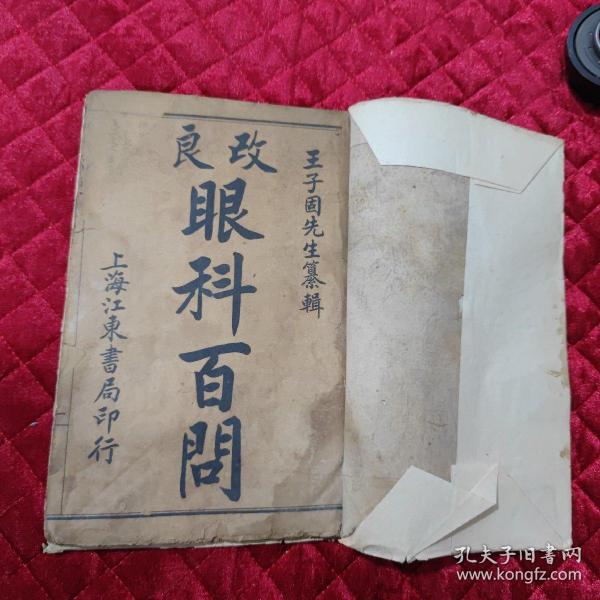 王子固先生纂輯
改良
眼科百問
上海江東書局印行
孔夫子旧書网
www.kongfz.com